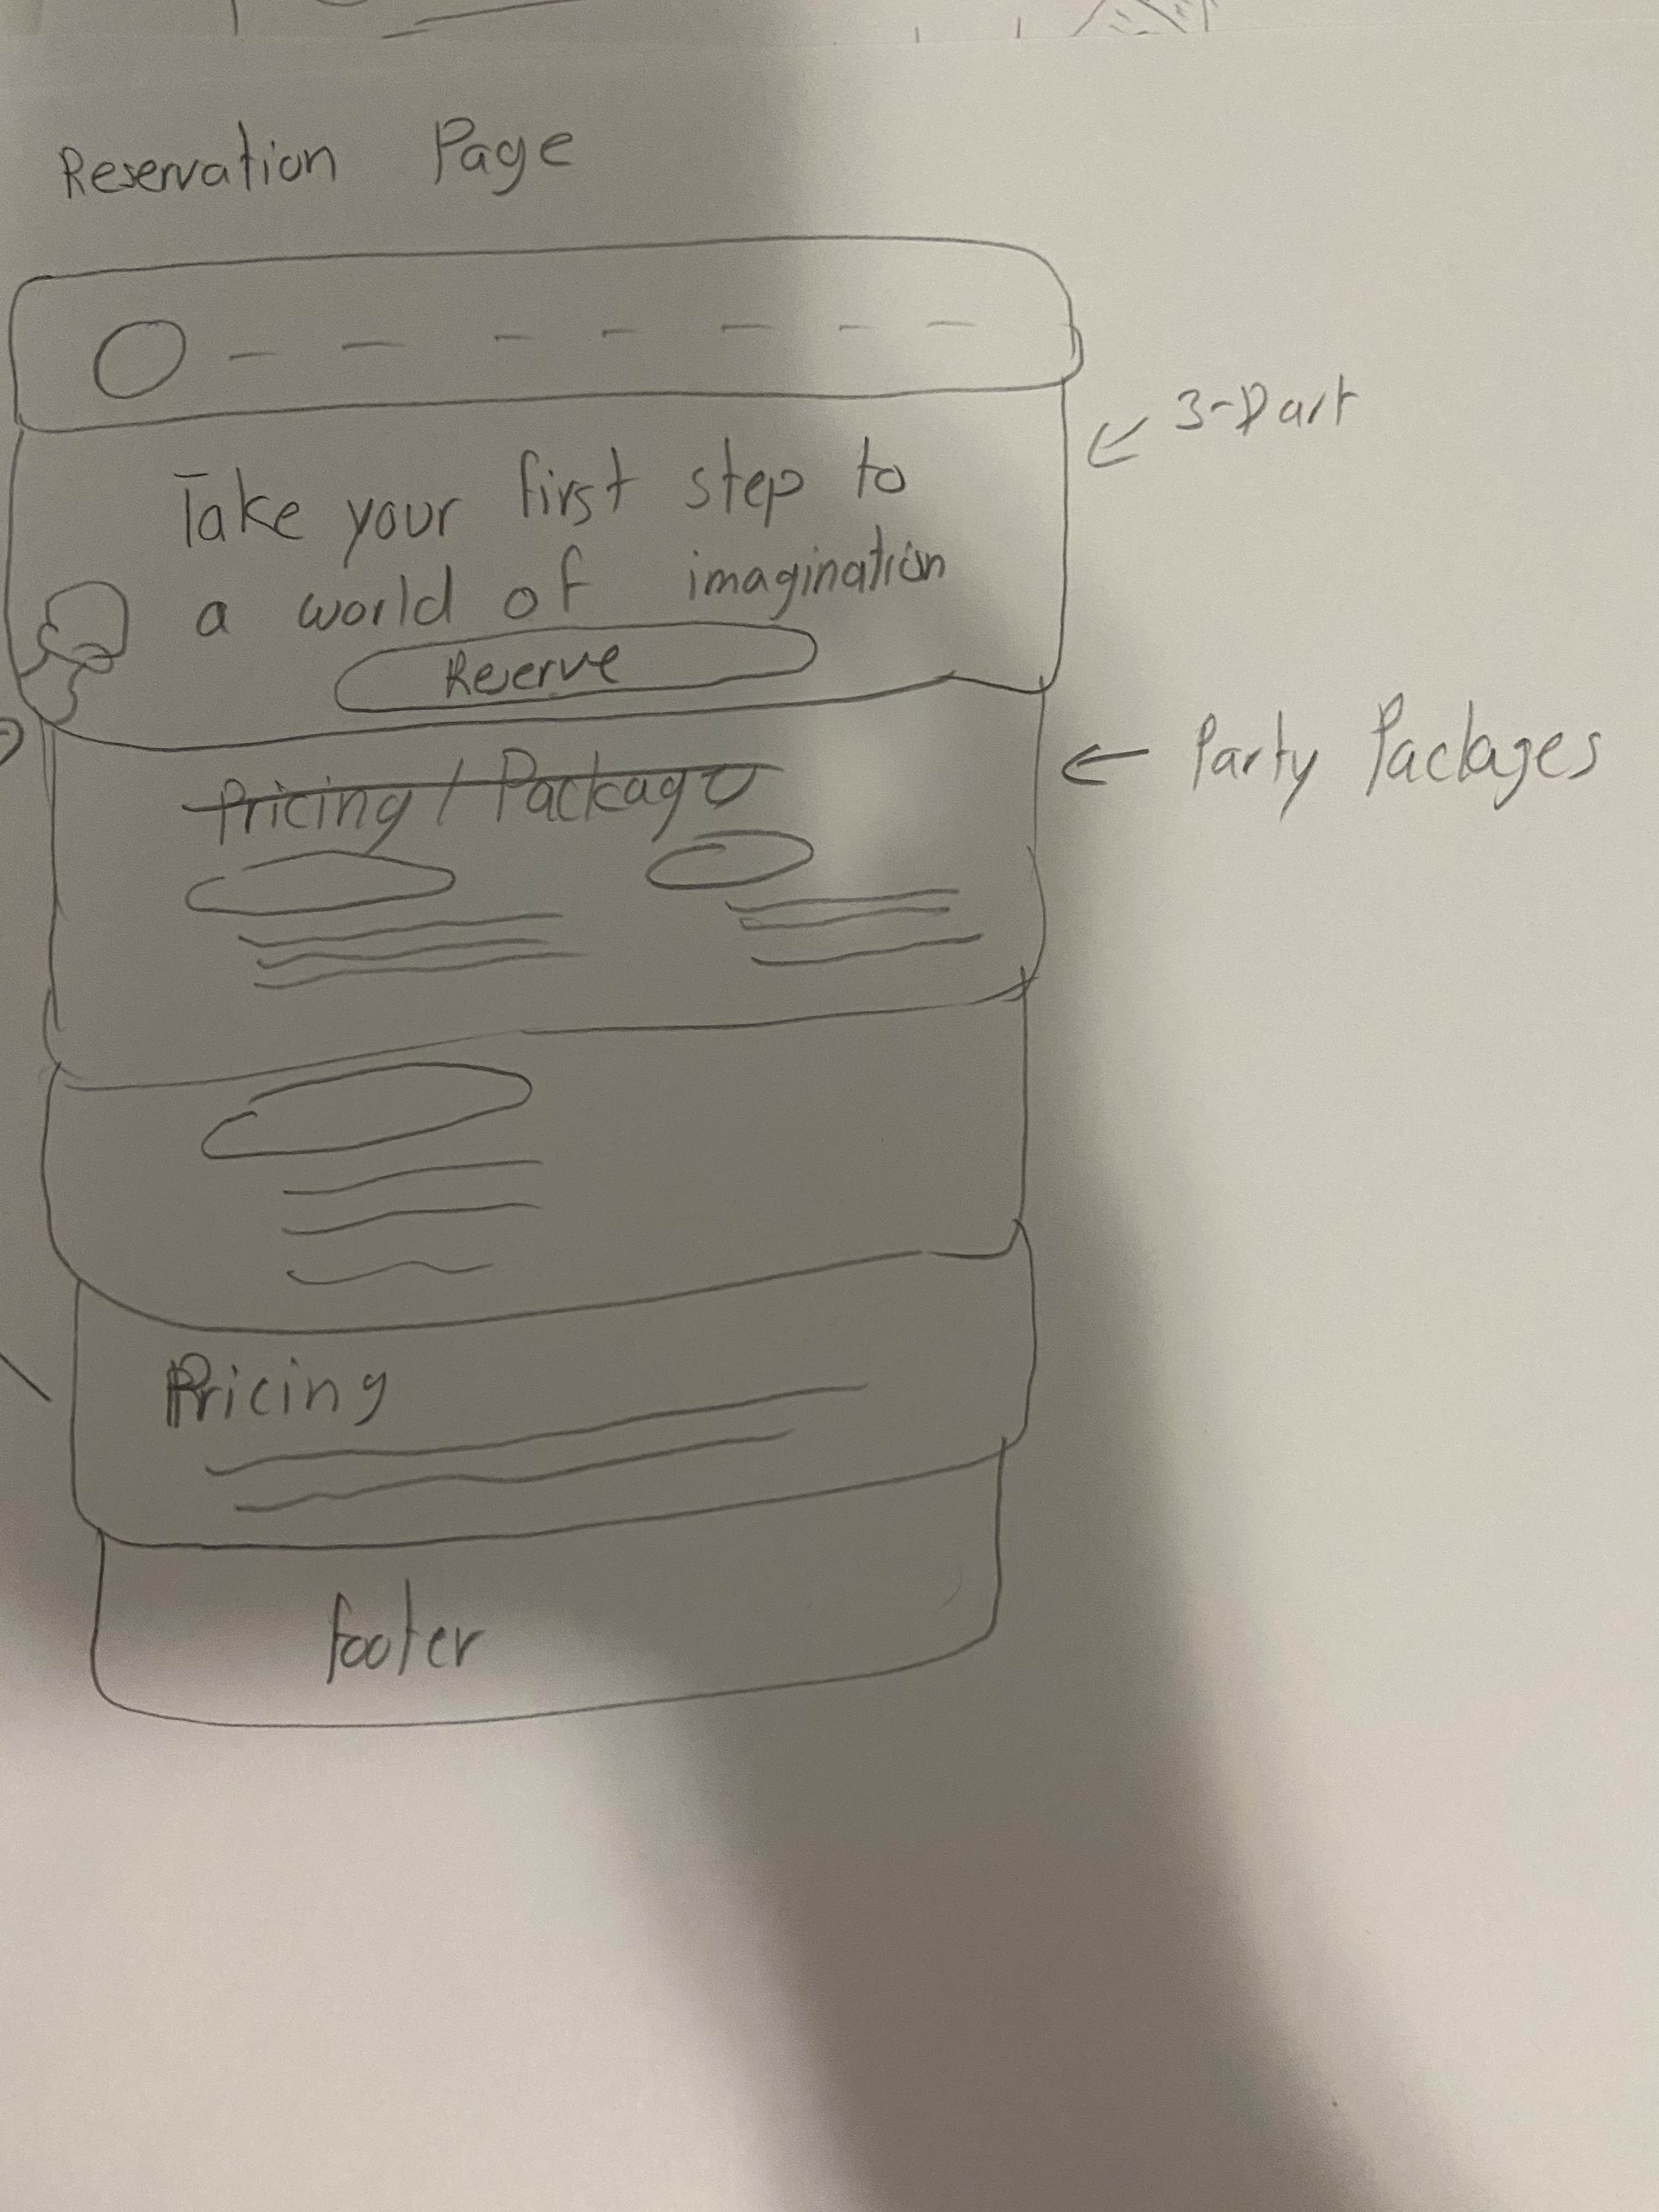 Reservation Page
3-Part
Take your first step to
a world of imagination
Reserve
Pricing / Package
Party Packages
Pricing
footer